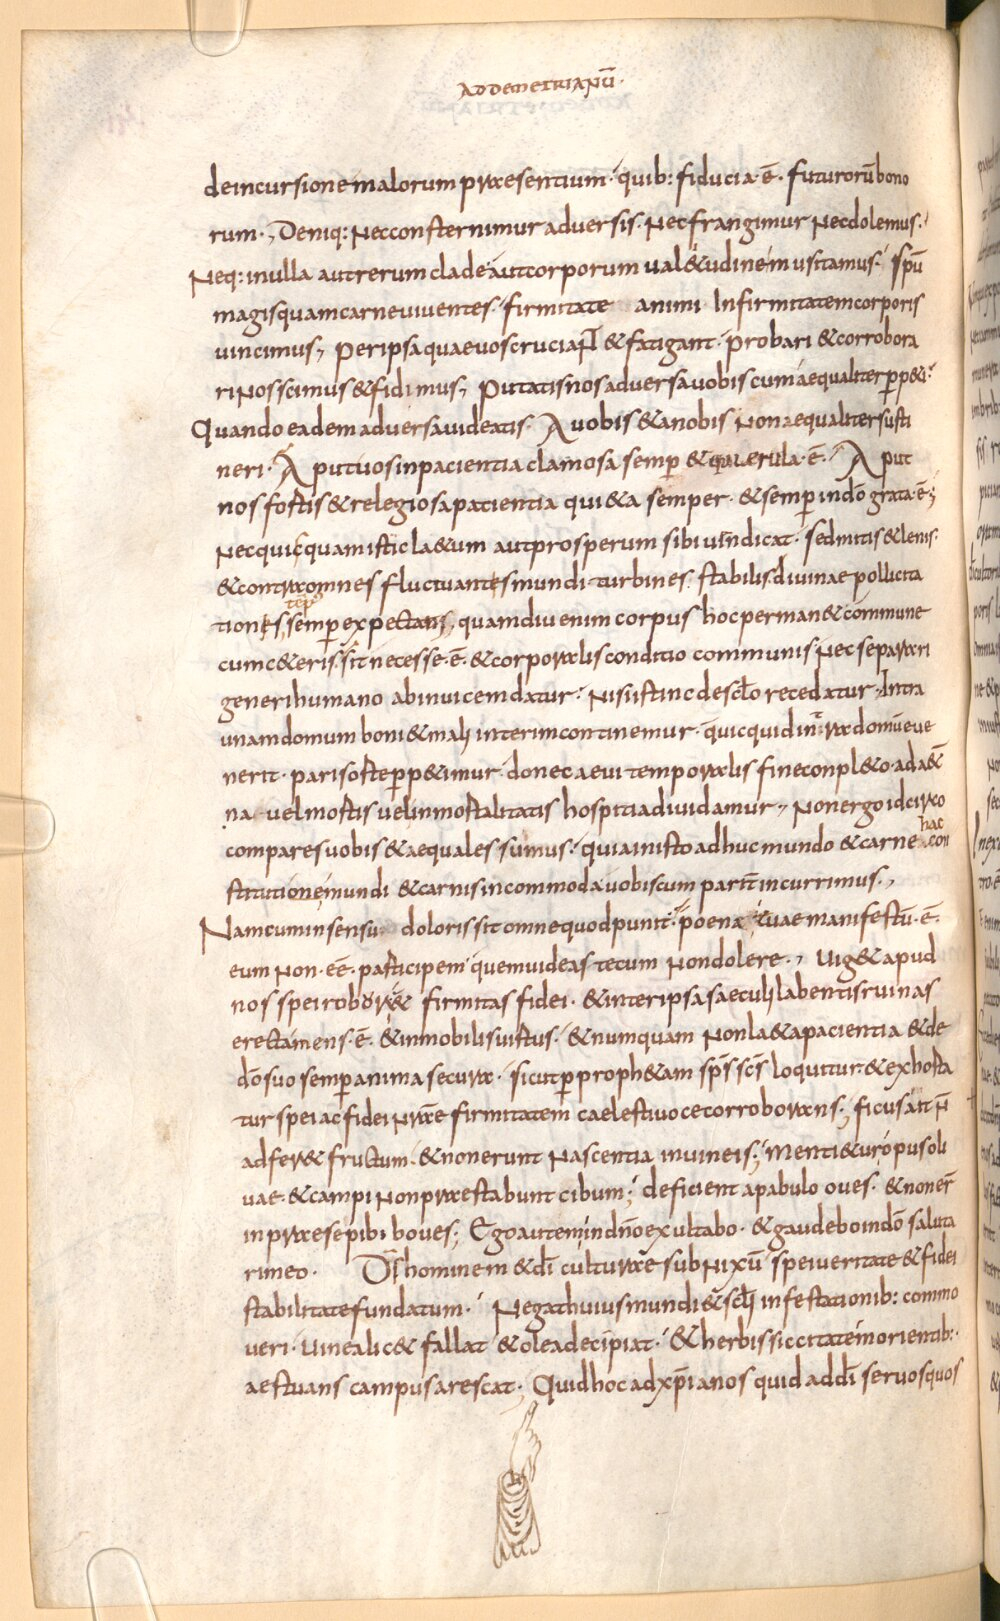 AD DEMETRIANŪ·
de incursione malorum praesentium· quib: fiducia·ē· futurorū bono
rum·, Deniq: nec consternimur adversis· nec frangimur nec dolemus·
Neq: in ulla aut rerum clade aut corporum ual&udinem musitamus· spū
magis quam carne viventes· firmitate animi Infirmitatem corporis
vincimus, per ipsa quae vos cruciaɴt & fatigant· probari & corrobora
ri nos scimus & fidimus, Putatis nos adversa vobiscum aequaliter ꝑp&i·
Quando eadem adversa videatis· A vobis & a nobis non aequaliter susti
neri· Aput vos inpacientia clamosa semꝑ & querula·ē· Aput
nos fortis & relegiosa patientia qui&a semper· & semꝑ in dō grata·ē;
Nec quicquam istic la&um aut prosperum sibi vindicat· sed mitis & lenis·
& contra omnes fluctuantes mundi turbines stabilis divinae pollicita
tionis, semꝑ expectans, quamdiu enim corpus hoc perman& commune
cum c&eris sit necesse·ē· & corporalis conditio communis Nec separari
generi humano ab invicem datur· Nisi istinc de sclō recedatur· Intra
unam domum boni & mali interim continemur· quicquid intra domū eve
nerit· pari sorte ꝑp&imur· donec aevi temporalis fine conpl&o· ad a&
na vel mortis vel inmortalitatis hospitia dividamur, Non ergo idcirco
compares vobis & aequales sumus· quia in isto adhuc mundo & carne hac con
stitutione mundi & carnis incommoda vobiscum parit incurrimus·,
Nam cum in sensu doloris sit omne quod punit· poenae tuae manifestū·ē·
eum non·eē· participem quem videas tecum non dolere·, Vig& apud
nos spei robur & firmitas fidei· & inter ipsa saeculi labentis ruinas
erecta mens·ē· & inmobilis virtus· & numquam non la&a pacientia & de
dō suo semꝑ anima secura· sicut ꝑ proph&am sps scs loquitur & exhorta
tur spei ac fidei nrae firmitatem caelesti voce corroborans; ficus aɴt n̄
adfer& fructum· & non erunt nascentia in vineis; Menti&ur opus oli
vae· & campi non praestabunt cibum; deficient a pabulo oves· & non er̄
in praesepibi boves; Ego autem in dn̄o exultabo· & gaudebo in dō saluta
ri meo· Dī hominem & dī culturae subnixū spei veritate & fidei
stabilitate fundatum· Negat huius mundi & scli infestationib: commo
veri· Vinea lic& fallat & olea decipiat· & herbis siccitate morientib:
aestuans campus arescat; Quid hoc ad xp̄ianos quid ad dī servos quos